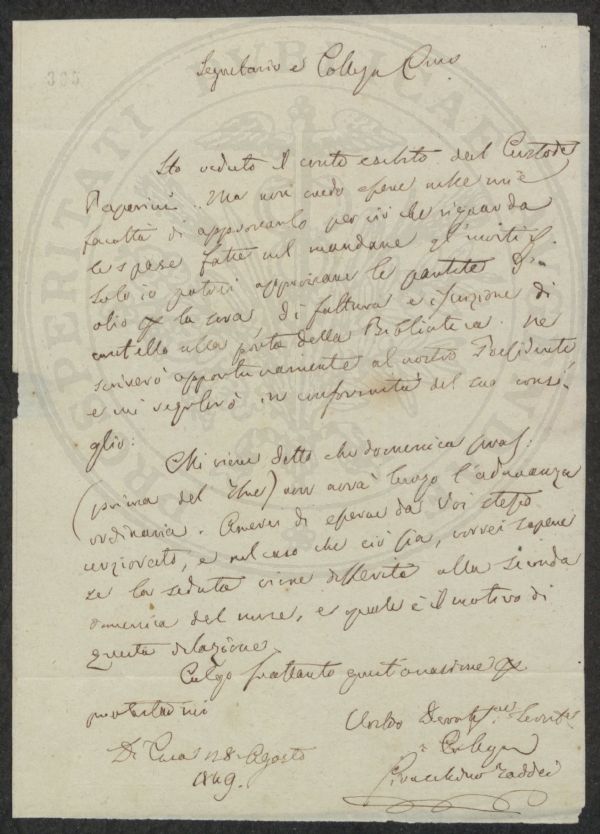 335
Segretario e Collega Caro
Ho veduto il conto esibito dal Custode
Paperini. Ma non credo essere nelle mie
facoltà di approvarlo per ciò che riguarda
le spese fatte nel mandare gl'inviti &.
Solo io potrei approvare le partite d'
olio per la di fattura e iscrizione di
cartello alla porta della Biblioteca. Ne
scriverò opportunamente al nostro Presidente
e mi regolerò in conformità del suo consi-
glio:
Mi vien detto che domenica pros:
(prima del 7bre) non avrà luogo l'adunanza
ordinaria. Amerei di esserne da Voi stesso
cerziorato, e nel caso che ciò sia, vorrei sapere
se la seduta viene differita alla seconda
domenica del mese, e quale è il motivo di
questa dilazione
Colgo frattanto quest'occasione per
protestarmi
Collega
Gioacchino Taddei
Di Casa 28 Agosto
1849.
PROSPERITATI PVBLICAE